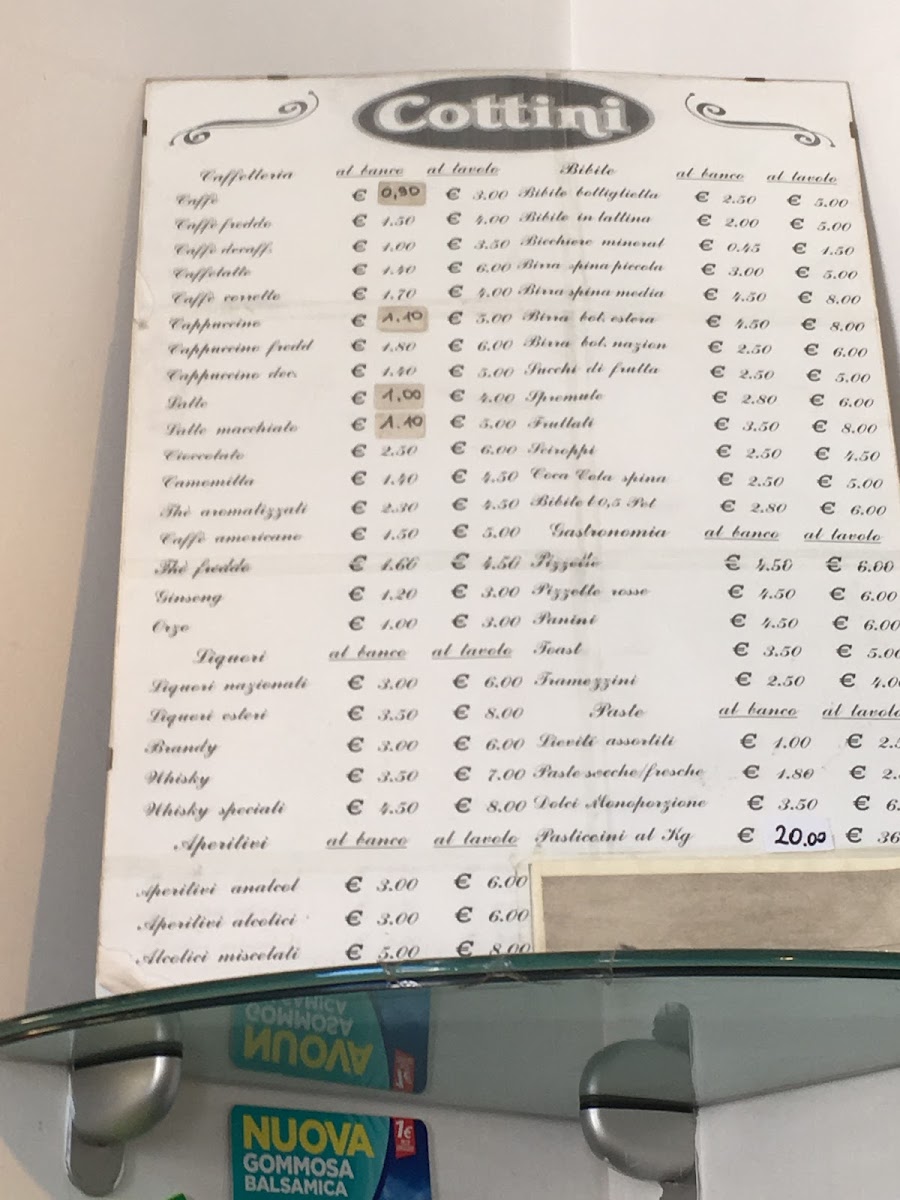 Cottini
Caffetteria al banco al tavolo
Caffè € 0,90 € 3.00
Caffè freddo € 1.50 € 4.00
Caffè decaff. € 1.00 € 3.50
Caffelatte € 1.40 € 6.00
Caffè corretto € 1.70 € 4.00
Cappuccino € 1.10 € 5.00
Cappuccino fredd € 1.80 € 6.00
Cappuccino dec. € 1.40 € 5.00
Latte € 1,00 € 4.00
Latte macchiato € 1.10 € 5.00
Cioccolato € 2.50 € 6.00
Camomilla € 1.40 € 4.50
Thè aromatizzati € 2.30 € 4.50
Caffè americano € 1.50 € 5.00
Thè freddo € 1.66 € 4.50
Ginseng € 1.20 € 3.00
Orzo € 1.00 € 3.00
Liquori al banco al tavolo
Liquori nazionali € 3.00 € 6.00
Liquori esteri € 3.50 € 8.00
Brandy € 3.00 € 6.00
Whisky € 3.50 € 7.00
Whisky speciali € 4.50 € 8.00
Aperitivi al banco al tavolo
Aperitivi analcol € 3.00 € 6.00
Aperitivi alcolici € 3.00 € 6.00
Alcolici miscelati € 5.00 € 8.00
Bibite al banco al tavolo
Bibite bottiglietta € 2.50 € 5.00
Bibite in lattina € 2.00 € 5.00
Bicchiere mineral € 0.45 € 1.50
Birra spina piccola € 3.00 € 5.00
Birra spina media € 4.50 € 8.00
Birra bot. estera € 4.50 € 8.00
Birra bot. nazion € 2.50 € 6.00
Succhi di frutta € 2.50 € 5.00
Spremute € 2.80 € 6.00
Frullati € 3.50 € 8.00
Sciroppi € 2.50 € 4.50
Coca Cola spina € 2.50 € 5.00
Bibite l 0,5 Pet € 2.80 € 6.00
Gastronomia al banco al tavolo
Pizzette € 4.50 € 6.00
Pizzette rosse € 4.50 € 6.00
Panini € 4.50 € 6.00
Toast € 3.50 € 5.00
Tramezzini € 2.50 € 4.0
Paste al banco al tavolo
Lieviti assortiti € 1.00 € 2.5
Paste secche/fresche € 1.80 € 2.
Dolci Monoporzione € 3.50 € 6.
Pasticcini al Kg € 20.00 € 36
GOMMOSA
NUOVA
NUOVA
GOMMOSA
BALSAMICA
1€